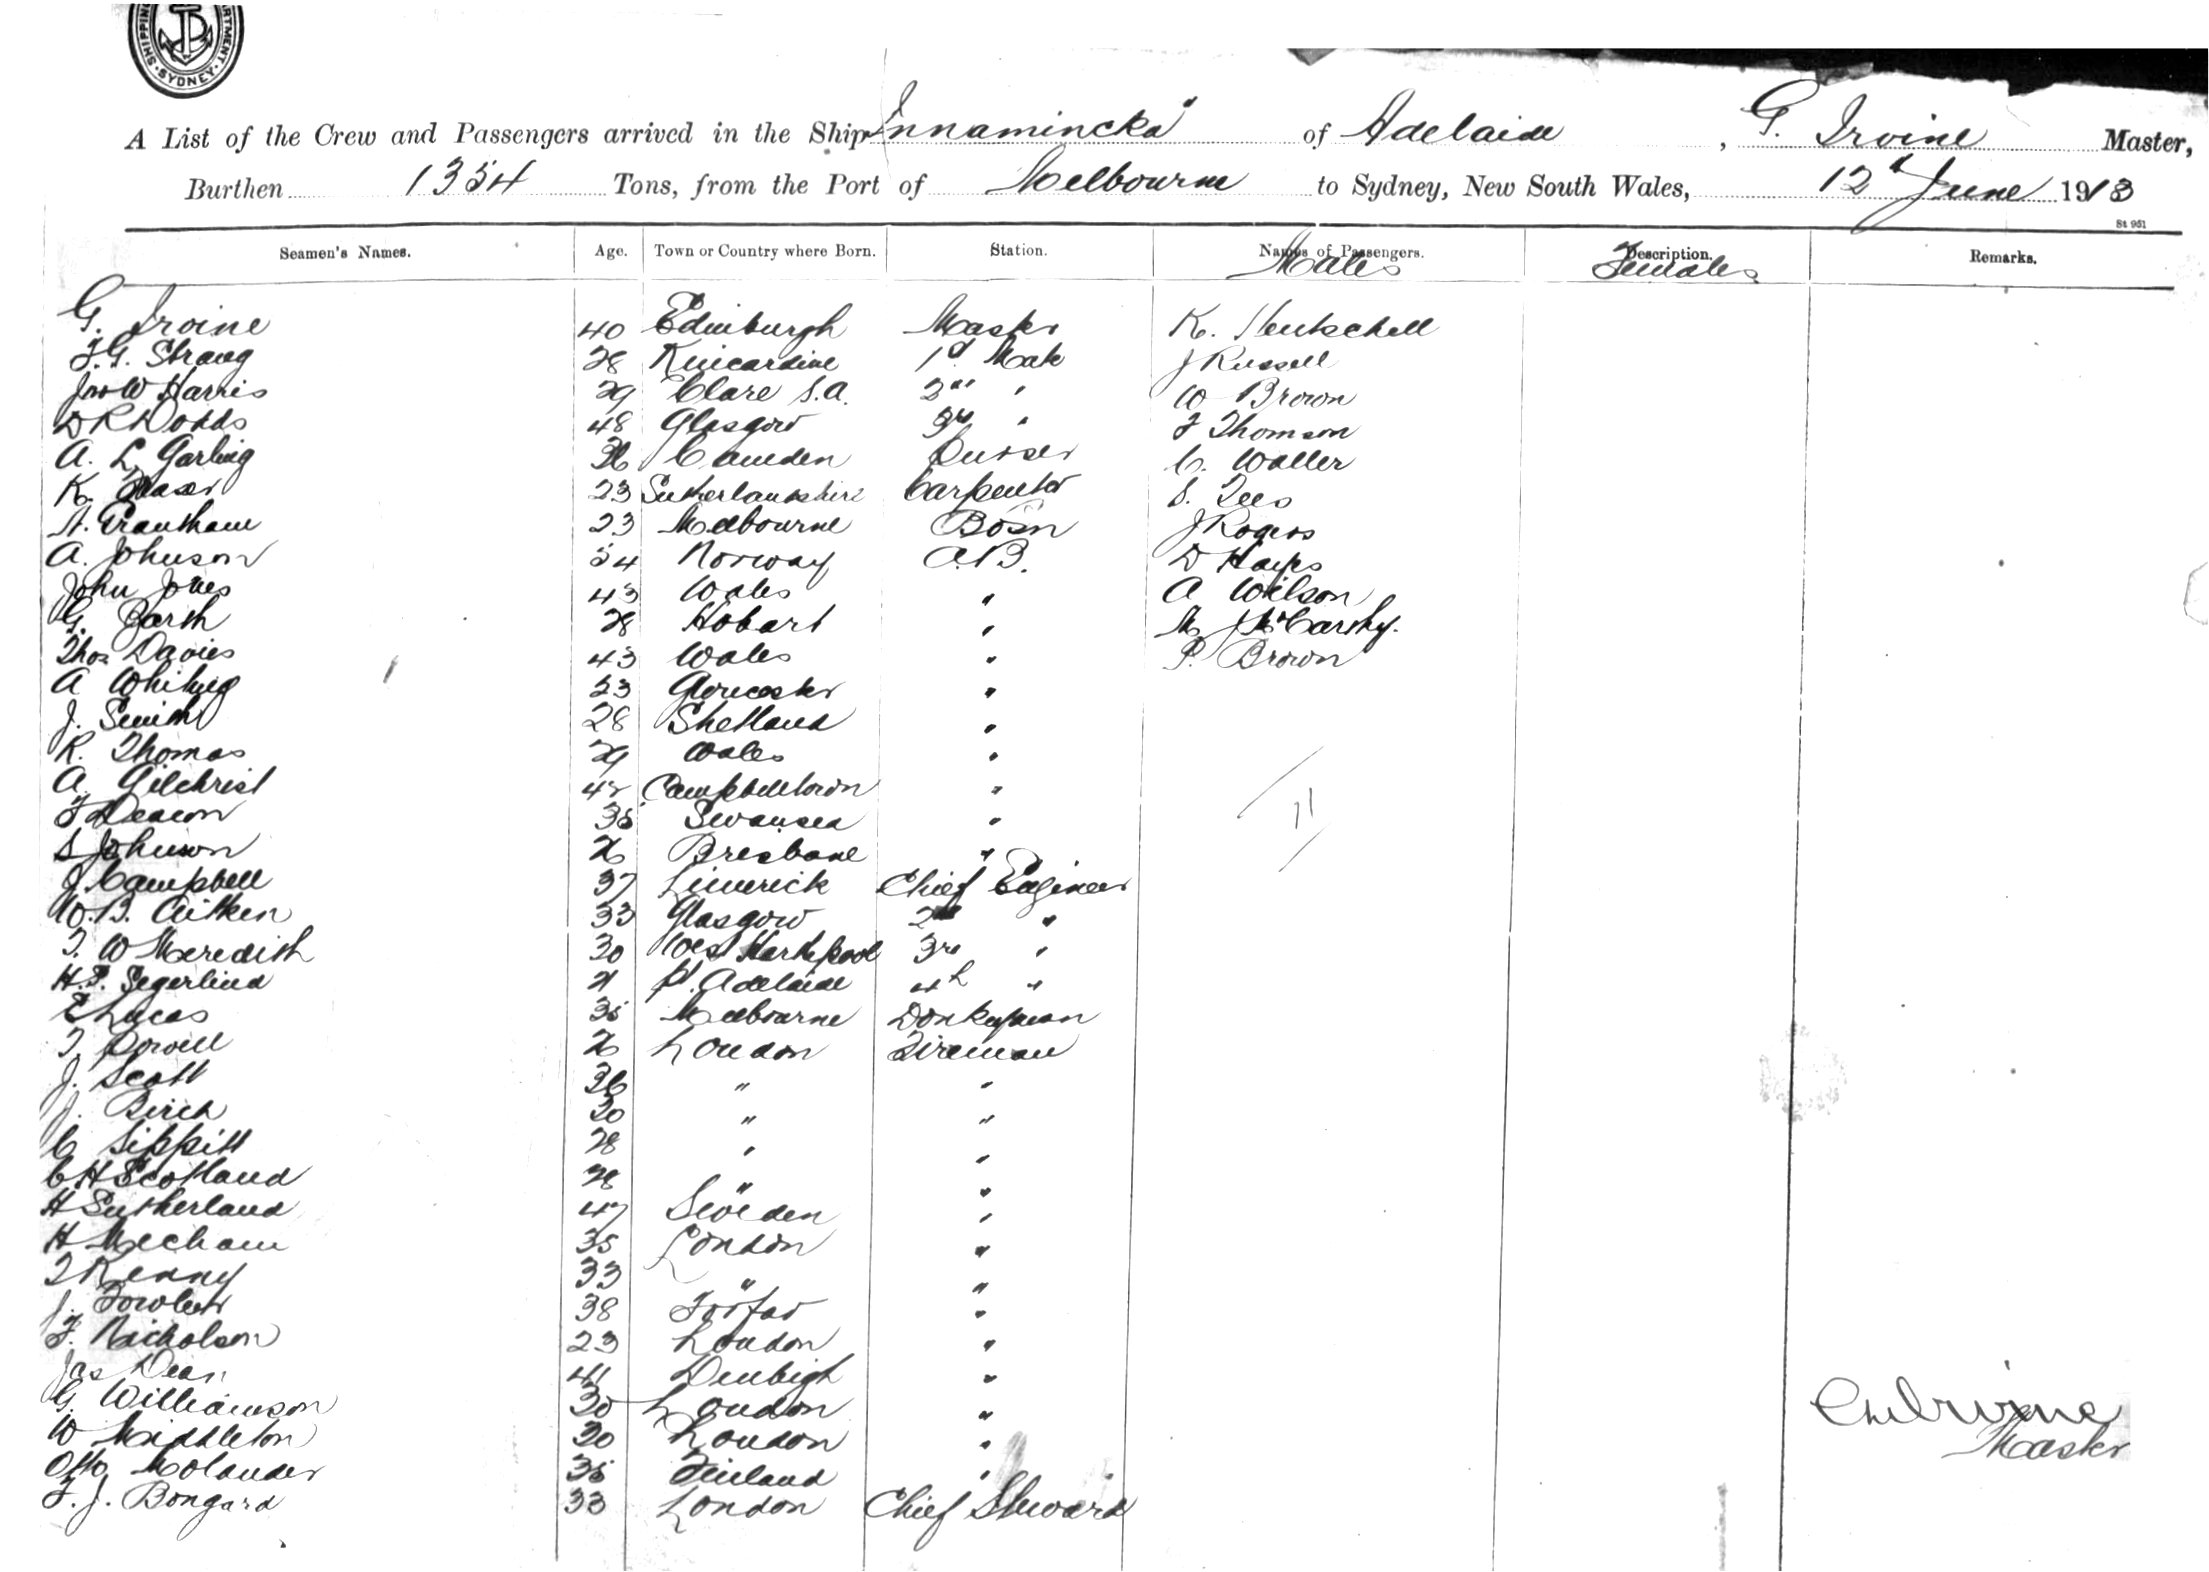 SHIPPING DEPARTMENT SYDNEY
A List of the Crew and Passengers arrived in the Ship "Innamincka" of Adelaide, G. Irvine Master,
Burthen 1354 Tons, from the Port of Melbourne to Sydney, New South Wales, 12th June 1913
St 951
Seamen's Names. Age. Town or Country where Born. Station. Names of Passengers. Description. Remarks.
Males Females
G. Irvine 40 Edinburgh Master K. Hentschell
J.G. Strang 28 Kincardine 1st Mate J Russell
Jno W Harris 29 Clare S.A. 2nd " W Brown
D R Dodds 48 Glasgow 3rd " F Thomson
A. L. Garling 36 Camden Purser C. Waller
K. Fraser 23 Sutherlandshire Carpenter S. Lees
A. Grantham 23 Melbourne Bosn J Rogers
A. Johnson 54 Norway A.B. D Hayes
John Jones 43 Wales " A Wilson
G. Garth 28 Hobart " M J McCarthy.
Thos Davies 43 Wales " P. Brown
A Whiting 23 Gloucester "
J. Smith 28 Shetland "
R. Thomas 29 Wales "
A. Gilchrist 42 Campbelltown "
F Deacon 35 Swansea "
S Johnson 26 Brisbane "
11
J. Campbell 37 Limerick Chief Engineer
W.B. Aitken 33 Glasgow 2nd "
T. W Meredith 30 West Hartlepool 3rd "
H.P. Segerlind 21 Pt. Adelaide 4th "
E Lucas 35 Melbourne Donkeyman
T Powell 26 London Fireman
J. Scott 36 " "
J. Birch 30 " "
C Sippitt 28 " "
C H Scotland 28 " "
H Sutherland 47 Sweden "
H Mecham 35 London "
T Kenny 33 " "
J. Fowler 38 Forfar "
F. Nicholson 23 London "
Jas Dean 41 Denbigh "
G. Williamson 30 London "
W Middleton 30 London "
Otto Molander 35 Finland "
F. J. Bongard 33 London Chief Steward
Irvine
Master